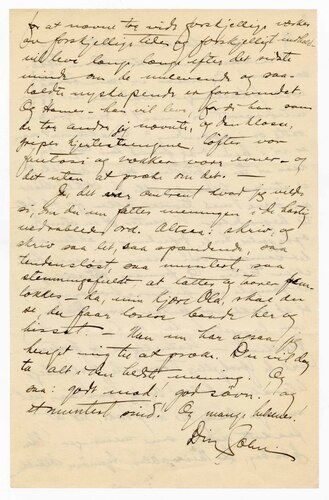 for at nævne to vidt forskjellige værker
av forskjellige tider og forskjelligt indhold
vil leve lange, lange efter det sidste
minde om de nulevende og saa-
kaldte nyskapende er forsvundet.
Og Hamsun - han vil leve, fordi han som
de to andre jeg nævnte, og den klasse,
griper hjertestrengene, løfter vor
fantasi og vækker vore evner - og
det uten at præke om det. -
Ja, det var omtrent hvad jeg vilde
si, om du nu fatter meningen i de hastig
nedrablede ord. Altsaa: skriv, og
skriv saa let, saa spændende, saa
tendensløst, saa muntert, saa
stemningsfuldt at latter og taarer frem-
lokkes - da, min kjære Ola, skal du
se, du faar læsere baade her og
hisset. - Men nu har ogsaa jeg
hengit mig til at præke. Du vil dog
ta alt i den bedste mening. Og
saa: godt mod! god søvn! og
et muntert sind! Og mange hilsener.
Din John.